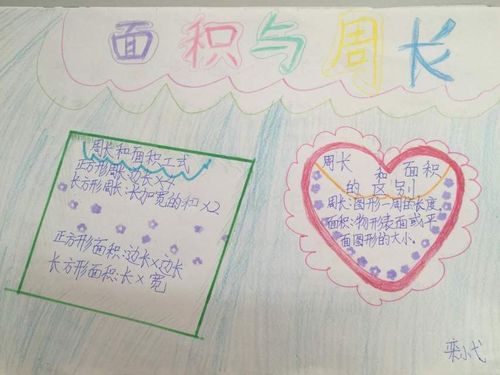 面积与周长
周长和面积工式
正方形周长:边长×4
长方形周长:长加宽的和×2
正方形面积:边长×边长
长方形面积:长×宽
周长和面积
的区别
周长:图形一周的长度,
面积:物形表面或平
面图形的大小.
栾小弋